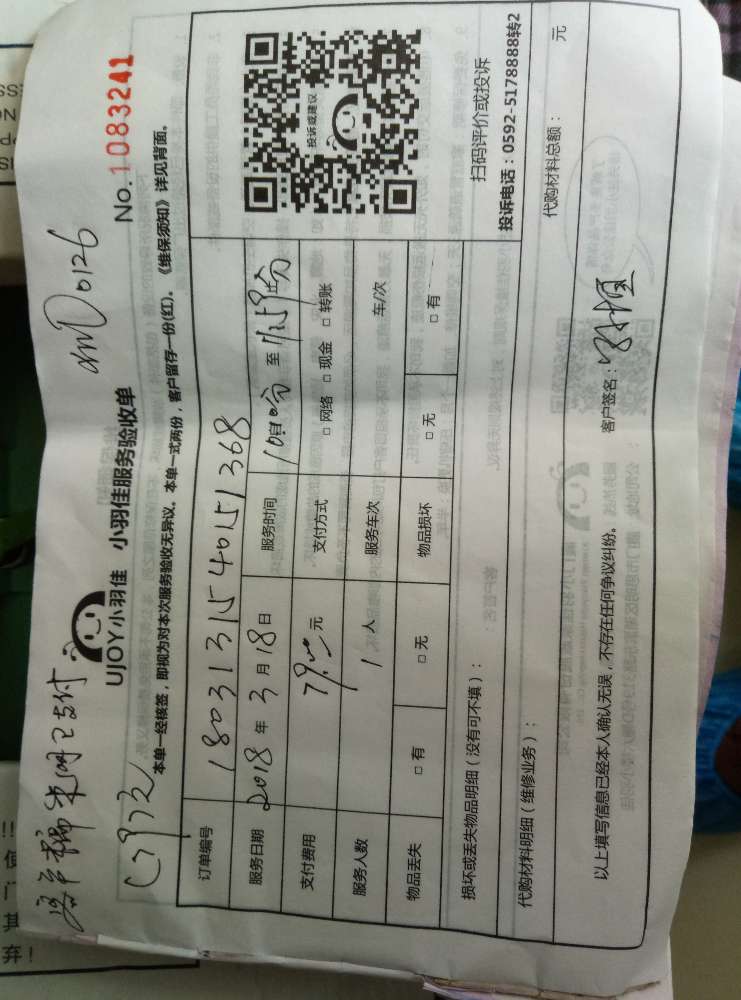 客户稱来网已支付
dmD0126
UJOY小羽佳 小羽佳服务验收单
No.1083241
本单一经核签，即视为对本次服务验收无异议。本单一式两份，客户留存一份(红)。《维保须知》详见背面。
订单编号 1803131540151368
服务日期 2018年3月18日 服务时间 至
支付费用 元 支付方式 □网络 □现金 □转账
服务人数 1人 服务车次 车/次
物品丢失 □有 □无 物品损坏 □无 □有
投诉或建议
扫码评价或投诉
投诉电话：0592-5178888转2
损坏或丢失物品明细（没有可不填）：
代购材料明细（维修业务）： 代购材料总额： 元
以上填写信息已经本人确认无误，不存在任何争议纠纷。 客户签名：